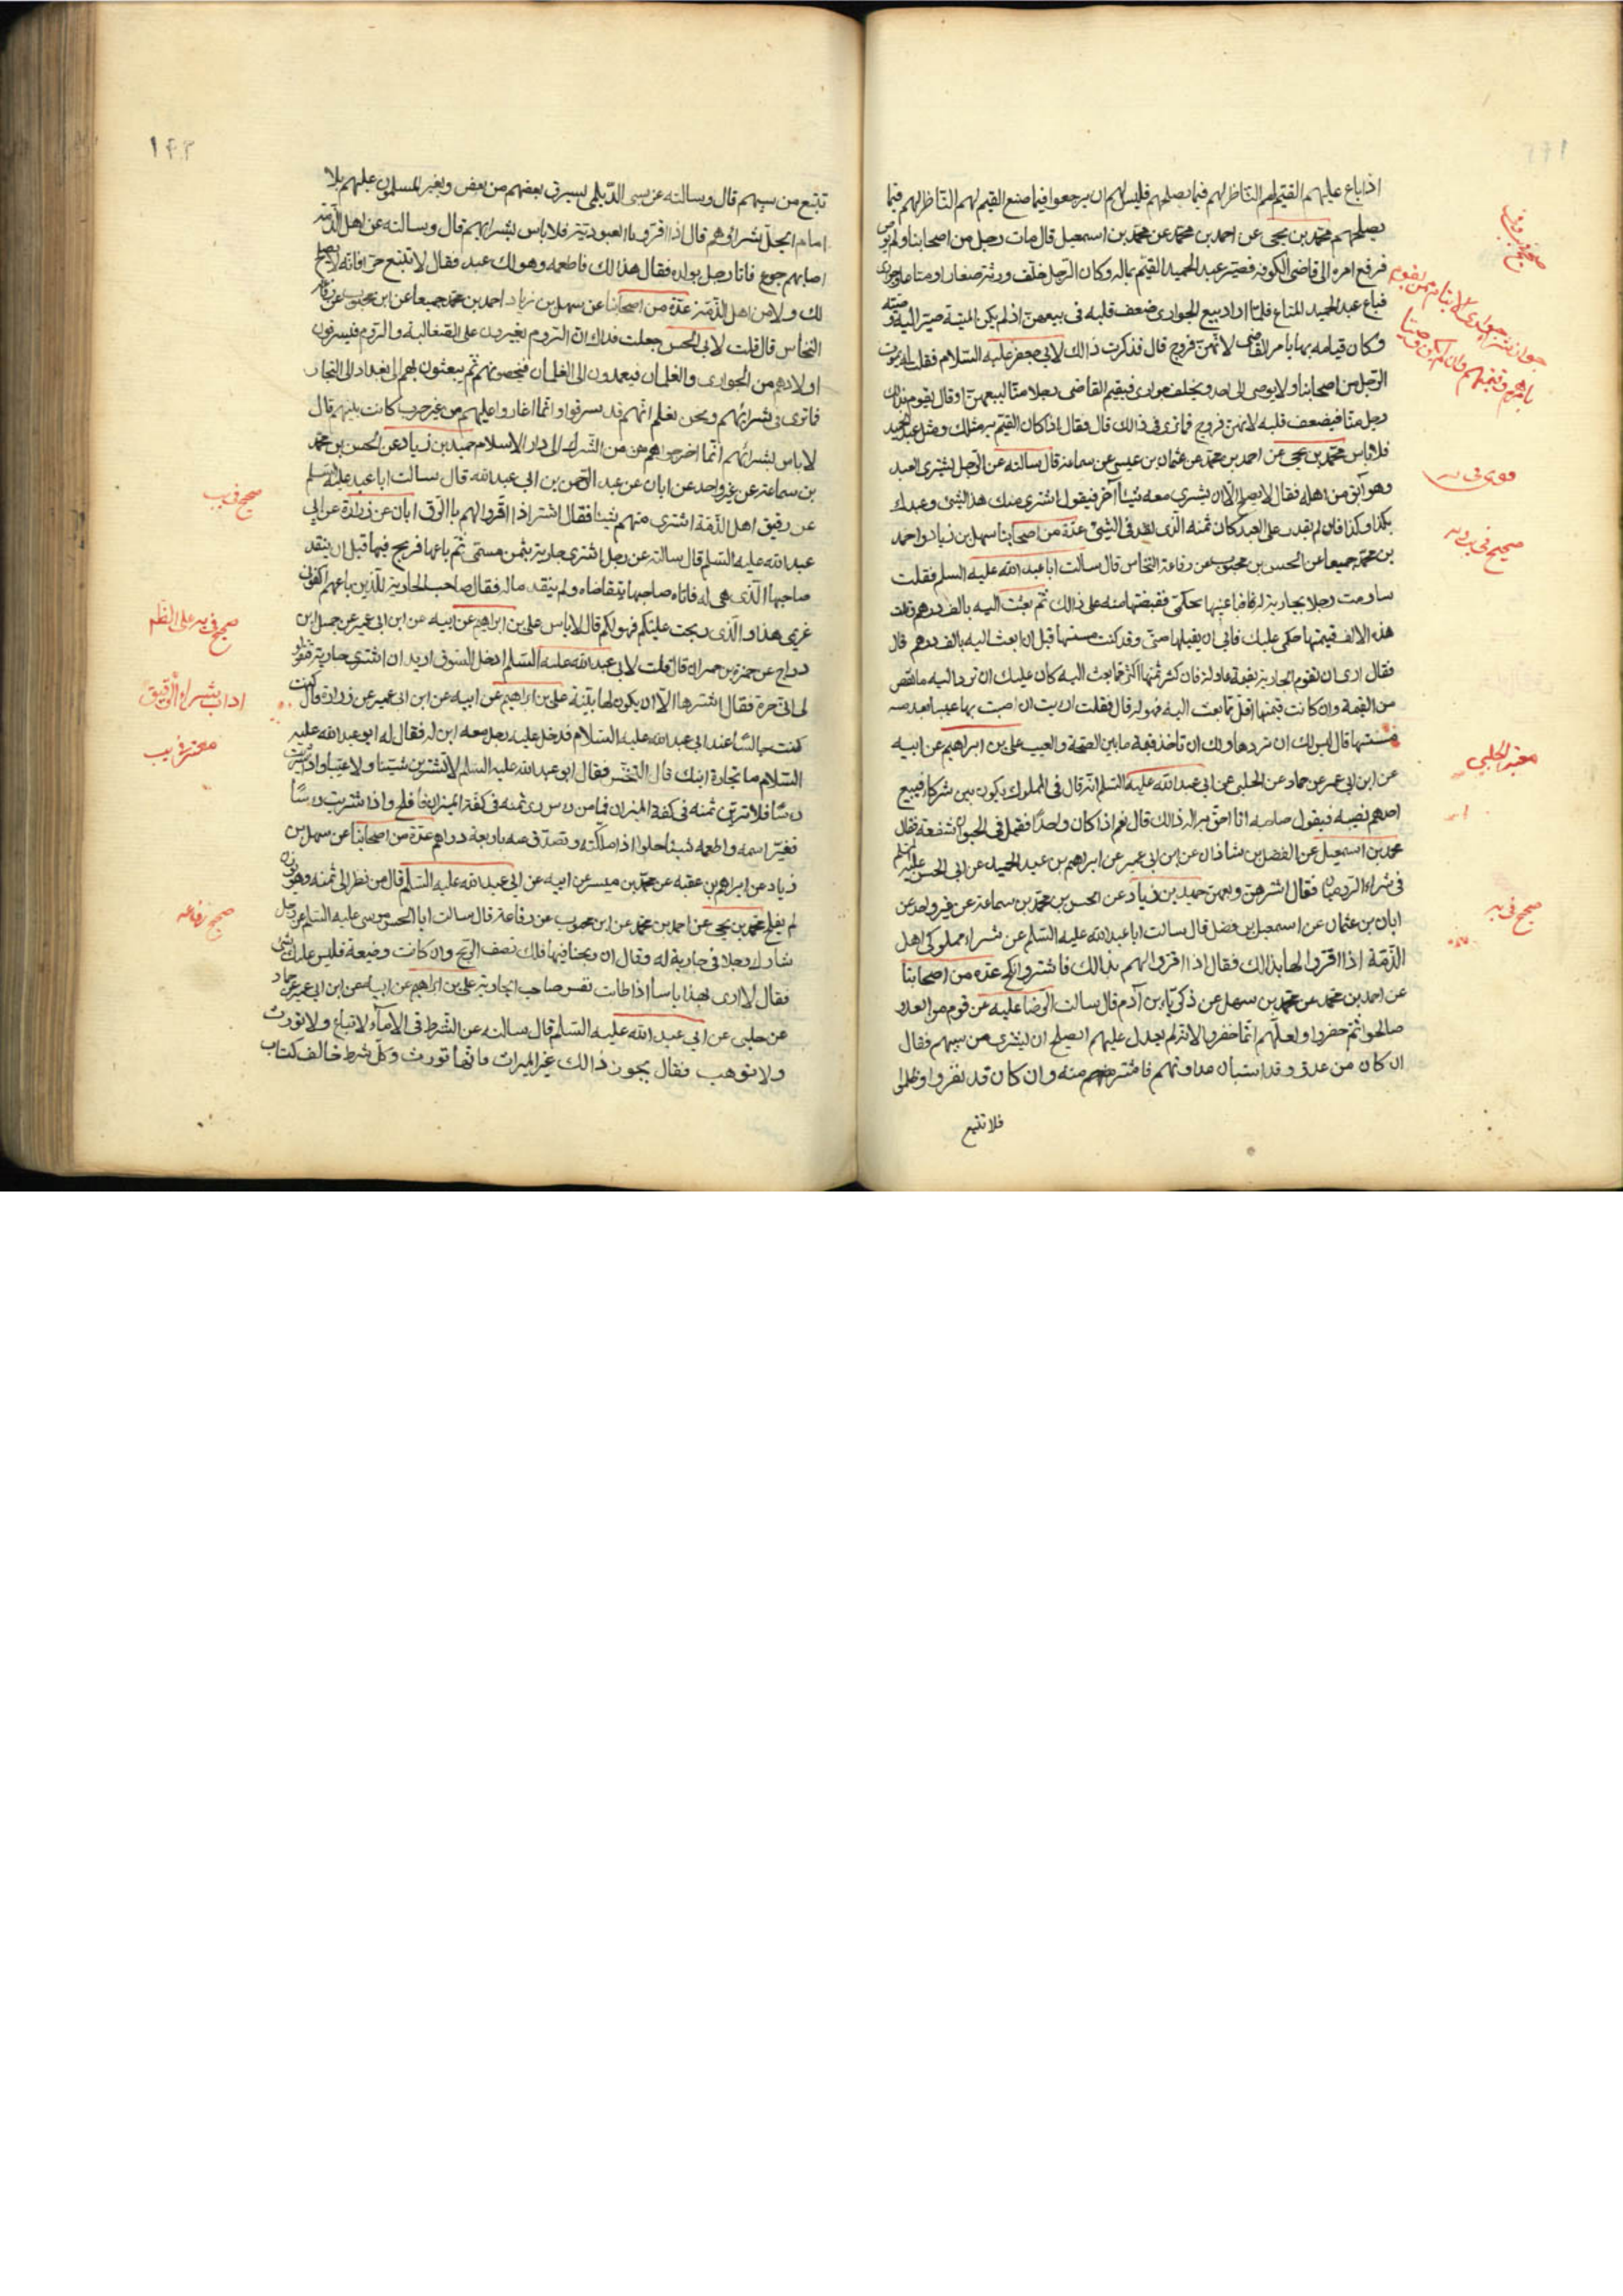 اذا باع عليهم القيم لهم الناظر لهم فيما يصلحهم فليس لهم ان يرجعوا فيما صنع القيم لهم الناظر لهم فيما
يصلحهم محمد بن يحيى عن احمد بن محمد عن محمد بن اسمعيل قال مات رجل من اصحابنا ولم يوص
فرفع امره الى قاضى الكوفة فصير عبد الحميد القيم بماله وكان الرجل خلف ورثة صغارا ومتاعا وجوارى
فباع عبد الحميد المتاع فلما اراد بيع الجوارى ضعف قلبه فى بيعهن اذ لم يكن الميت صير اليه وصيته
وكان قيامه بها بامر القاضى لانهن فروج قال فذكرت ذالك لابى جعفر عليه السلام فقلت له يموت
الرجل من اصحابنا ولا يوصى الى احد ويخلف جوارى فيقيم القاضى رجلا منا ليبيعهن او قال يقوم بذالك
رجل منا فيضعف قلبه لانهن فروج فما ترى فى ذالك قال فقال اذا كان القيم به مثلك ومثل عبد الحميد
فلا باس محمد بن يحيى عن احمد بن محمد عن عثمان بن عيسى عن سماعة قال سالته عن الرجل يشترى العبد
وهو آبق من اهله فقال لا يصلح الا ان يشترى معه شيئا آخر فيقول اشترى منك هذا الشئ وعبدك
بكذا وكذا فان لم يقدر على العبد كان ثمنه الذى نقد فى الشئ عدة من اصحابنا سهل بن زياد واحمد
بن محمد جميعا عن الحسن بن محبوب عن رفاعة النخاس قال سالت ابا عبد الله عليه السلم فقلت
ساومت رجلا بجارية له فباعنيها بحكمى فقبضتها منه على ذالك ثم بعثت اليه بالف درهم وقلت
هذه الالف قيمتها حكمى عليك فابى ان يقبلها منى وقد كنت مسستها قبل ان ابعث اليه بالف درهم قال
فقال ارى ان تقوم الجارية بقيمة عادلة فان كثر ثمنها اكثر مما بعث اليه كان عليك ان ترد اليه ما نقص
من القيمة وان كانت قيمتها اقل مما بعث اليه فهو له قال فقلت ارايت ان اصبت بها عيبا بعد
مسستها قال ليس لك ان تردها ولك ان تاخذ قيمة ما بين الصحة والعيب على بن ابراهيم عن ابيه
عن ابن ابى عمير عن حماد عن الحلبى عن ابى عبد الله عليه السلم انه قال فى المملوك يكون بين شركاء فيبيع
احدهم نصيبه فيقول صاحبه انا احق به اله ذالك قال نعم اذا كان واحدا فقيل فى الحيوان شفعة فقال
محمد بن اسمعيل عن الفضل بن شاذان عن ابن ابى عمير عن ابراهيم بن عبد الحميد عن ابى الحسن عليه السلم
فى شراء الروميات فقال اشترهن وبعهن حميد بن زياد عن الحسن بن محمد بن سماعة عن غير واحد عن
ابان بن عثمان عن اسمعيل بن فضل قال سالت ابا عبد الله عليه السلم عن شراء مملوكى اهل
الذمة اذا اقروا لها بذالك فقال اذا اقروا لهم بذالك فاشتر وانكح عدة من اصحابنا
عن احمد بن محمد عن محمد بن سهل عن زكريا بن آدم قال سالت الرضا عليه عن قوم من العدو
صالحوا ثم خفروا ولعلهم انما خفروا لانه لم يعدل عليهم ايصلح ان يشترى من سبيهم فقال
ان كان من عدو قد استبان عداوتهم فاشتر منه وان كان قد نفروا وظلموا
فلا تتبع
صحيح فى يب
جواز بيع جوارى الايتام ممن يقوم
بامرهم
قوى فى يه
صحيح فى يب ويه
معتبر الحلبى
صحيح فى يه
١٤٣
تتبع من سبيهم قال وسالته عن سبى الديلمى يسرق بعضهم من بعض ويغير المسلمون عليهم بلا
امام ايحل شرائهم قال اذا اقروا بالعبودية فلا باس بشرائهم قال وسالته عن اهل الذمة
اصابهم جوع فاتا رجل بولده فقال هذا لك فاطعمه وهو لك عبد فقال لا تبتع حرا فانه لا يصلح
لك ولا من اهل الذمة عدة من اصحابنا عن سهل بن زياد احمد بن محمد جميعا عن ابن محبوب عن رفاعة
النخاس قال قلت لابى الحسن جعلت فداك ان الروم يغيرون على الصقالبة والروم فيسرقون
اولادهم من الجوارى والغلمان فيعمدون الى الغلمان فيخصونهم ثم يبعثون بهم الى بغداد الى التجار
فما ترى فى شرائهم ونحن نعلم انهم قد سرقوا وانما اغاروا عليهم من غير حرب كانت بينهم قال
لا باس بشرائهم انما اخرجوهم من الشرك الى دار الاسلام حميد بن زياد عن الحسن بن محمد
بن سماعة عن غير واحد عن ابان عن عبد الرحمن بن ابى عبد الله قال سالت ابا عبد عليه السلم
عن رقيق اهل الذمة اشترى منهم شيئا فقال اشتر اذا اقروا لهم بالرق ابان عن زرارة عن ابى
عبد الله عليه السلم قال سالته عن رجل اشترى جارية بثمن مسمى ثم باعها فربح فيها قبل ان ينقد
صاحبها الذى هى له فاتاه صاحبها يتقاضاه ولم ينقد ماله فقال صاحب الجارية للذين باعهم اكفونى
غريمى هذا والذى ربحت عليكم فهو لكم قال لا باس على بن ابراهيم عن ابيه عن ابن ابى عمير عن جميل ابن
دراج عن حمزة بن حمران قال قلت لابى عبد الله عليه السلم ادخل السوق اريد ان اشترى جارية فتقول
لى انى حرة فقال اشترها الا ان يكون لها بينة على بن ابراهيم عن ابيه عن ابن ابى عمير عن زرارة قال كنت
كنت جالسا عند ابى عبد الله عليه السلام فدخل عليه رجل معه ابن له فقال له ابو عبد الله عليه
السلام ما تجارة ابنك قال التنخس فقال ابو عبد الله عليه السلم لا تشترين شينا ولا عيبا واذا اشتريت
راسا فلا ترين ثمنه فى كفة الميزان فما من راس رى ثمنه فى كفة الميزان فافلح واذا اشتريت راسا
فغير اسمه واطعمه شيئا حلوا اذا ملكته وتصدق عنه باربعة دراهم عدة من اصحابنا عن سهل بن
زياد عن ابراهيم بن عقبه عن محمد بن ميسر عن ابيه عن ابى عبد الله عليه السلم قال من نظر الى ثمنه وهو يوزن
لم يفلح محمد بن يحيى عن احمد بن محمد عن ابن محبوب عن رفاعة قال سالت ابا الحسن موسى عليه السلم عن رجل
شارك رجلا فى جارية له وقال ان ربحنا فيها فلك نصف الربح وان كانت وضيعة فليس عليك شئ
فقال لا ارى بهذا باسا اذا طابت نفس صاحب الجارية على بن ابراهيم عن ابيه عن ابن ابى عمير عن حماد
عن حلبى عن ابى عبد الله عليه السلم قال سالته عن الشرط فى الاماء لا تباع ولا تورث
ولا توهب فقال يجوز ذالك غير الميراث فانها تورث وكل شرط خالف كتاب
صحيح فى يب
صحيح فى يه على الظم
اداب شراء الرقيق
معتبر فى يب
صحيح رفاعه